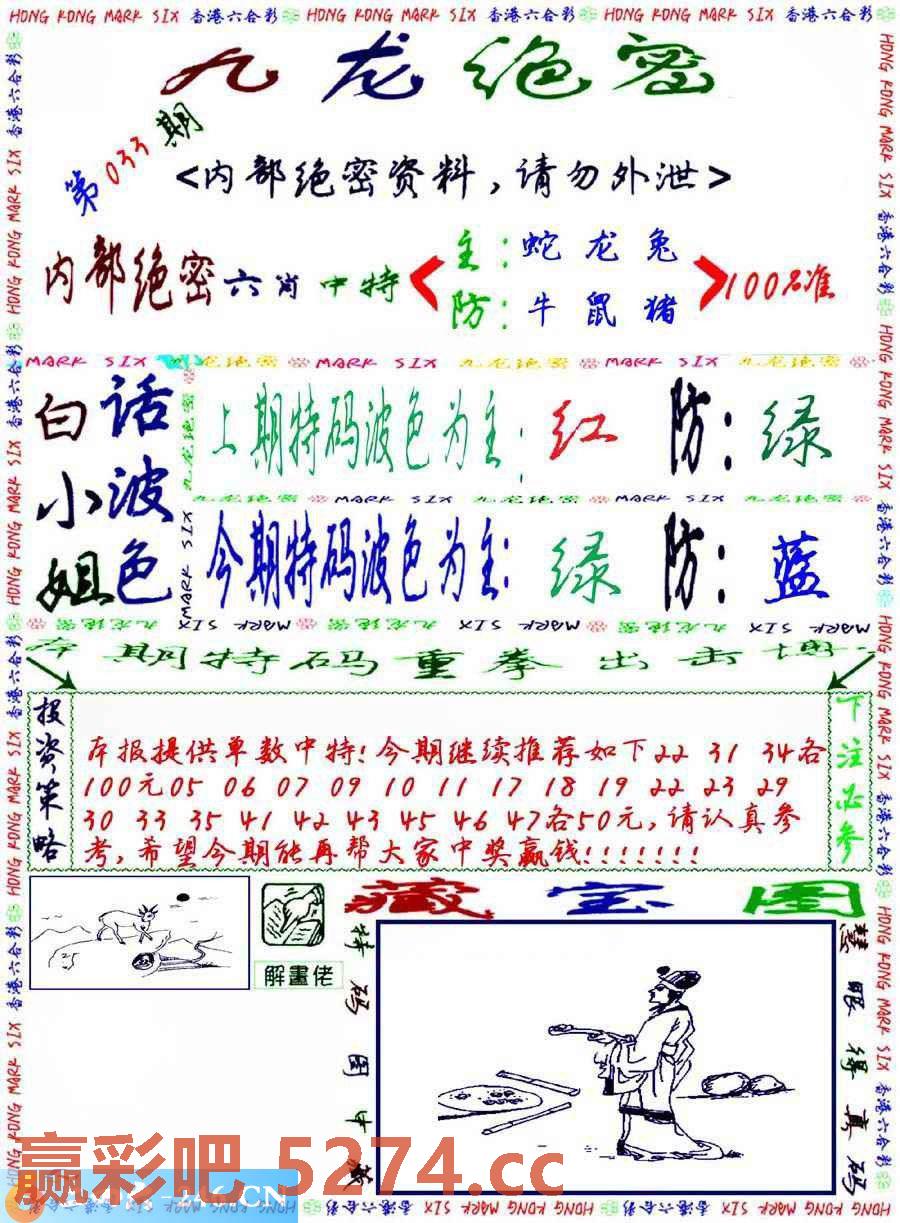 HONG KONG MARK SIX 香港六合彩 HONG KONG MARK SIX 香港六合彩 HONG KONG MARK SIX 香港六合彩
九龙绝密
第033期
<内部绝密资料，请勿外泄>
内部绝密六肖中特
主：蛇龙兔
防：牛鼠猪
100%准
MARK SIX 九龙绝密 MARK SIX 九龙绝密 MARK SIX 九龙绝密
白话小姐
波色
上期特码波色为主：红 防：绿
九龙绝密 MARK SIX 九龙绝密 MARK SIX 九龙绝密
今期特码波色为主：绿 防：蓝
期特码重拳出击
投资策略
本报提供单数中特！今期继续推荐如下22 31 34各
100元05 06 07 09 10 11 17 18 19 22 23 29
30 33 35 41 42 43 45 46 47各50元，请认真参
考，希望今期能再帮大家中奖赢钱！！！！！！！
下注必参
藏宝图
解畫佬
特码图中藏
慧眼得真码
赢彩吧 5274.cc